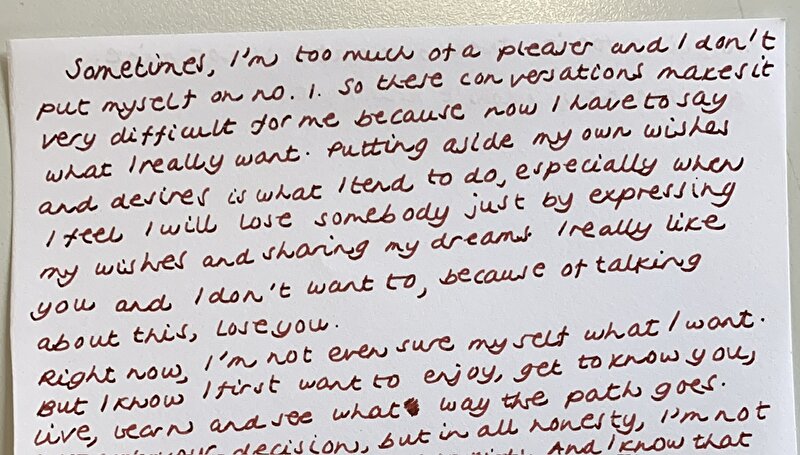 Sometimes, I'm too much of a pleaser and I don't
put myself on no. 1. So these conversations makes it
very difficult for me because now I have to say
what I really want. Putting aside my own wishes
and desires is what I tend to do, especially when
I feel I will lose somebody just by expressing
my wishes and sharing my dreams I really like
you and I don't want to, because of talking
about this, lose you.
Right now, I'm not even sure myself what I want.
But I know I first want to enjoy, get to know you,
live, learn and see what way the path goes.
decision, but in all honesty, I'm not
And I know that